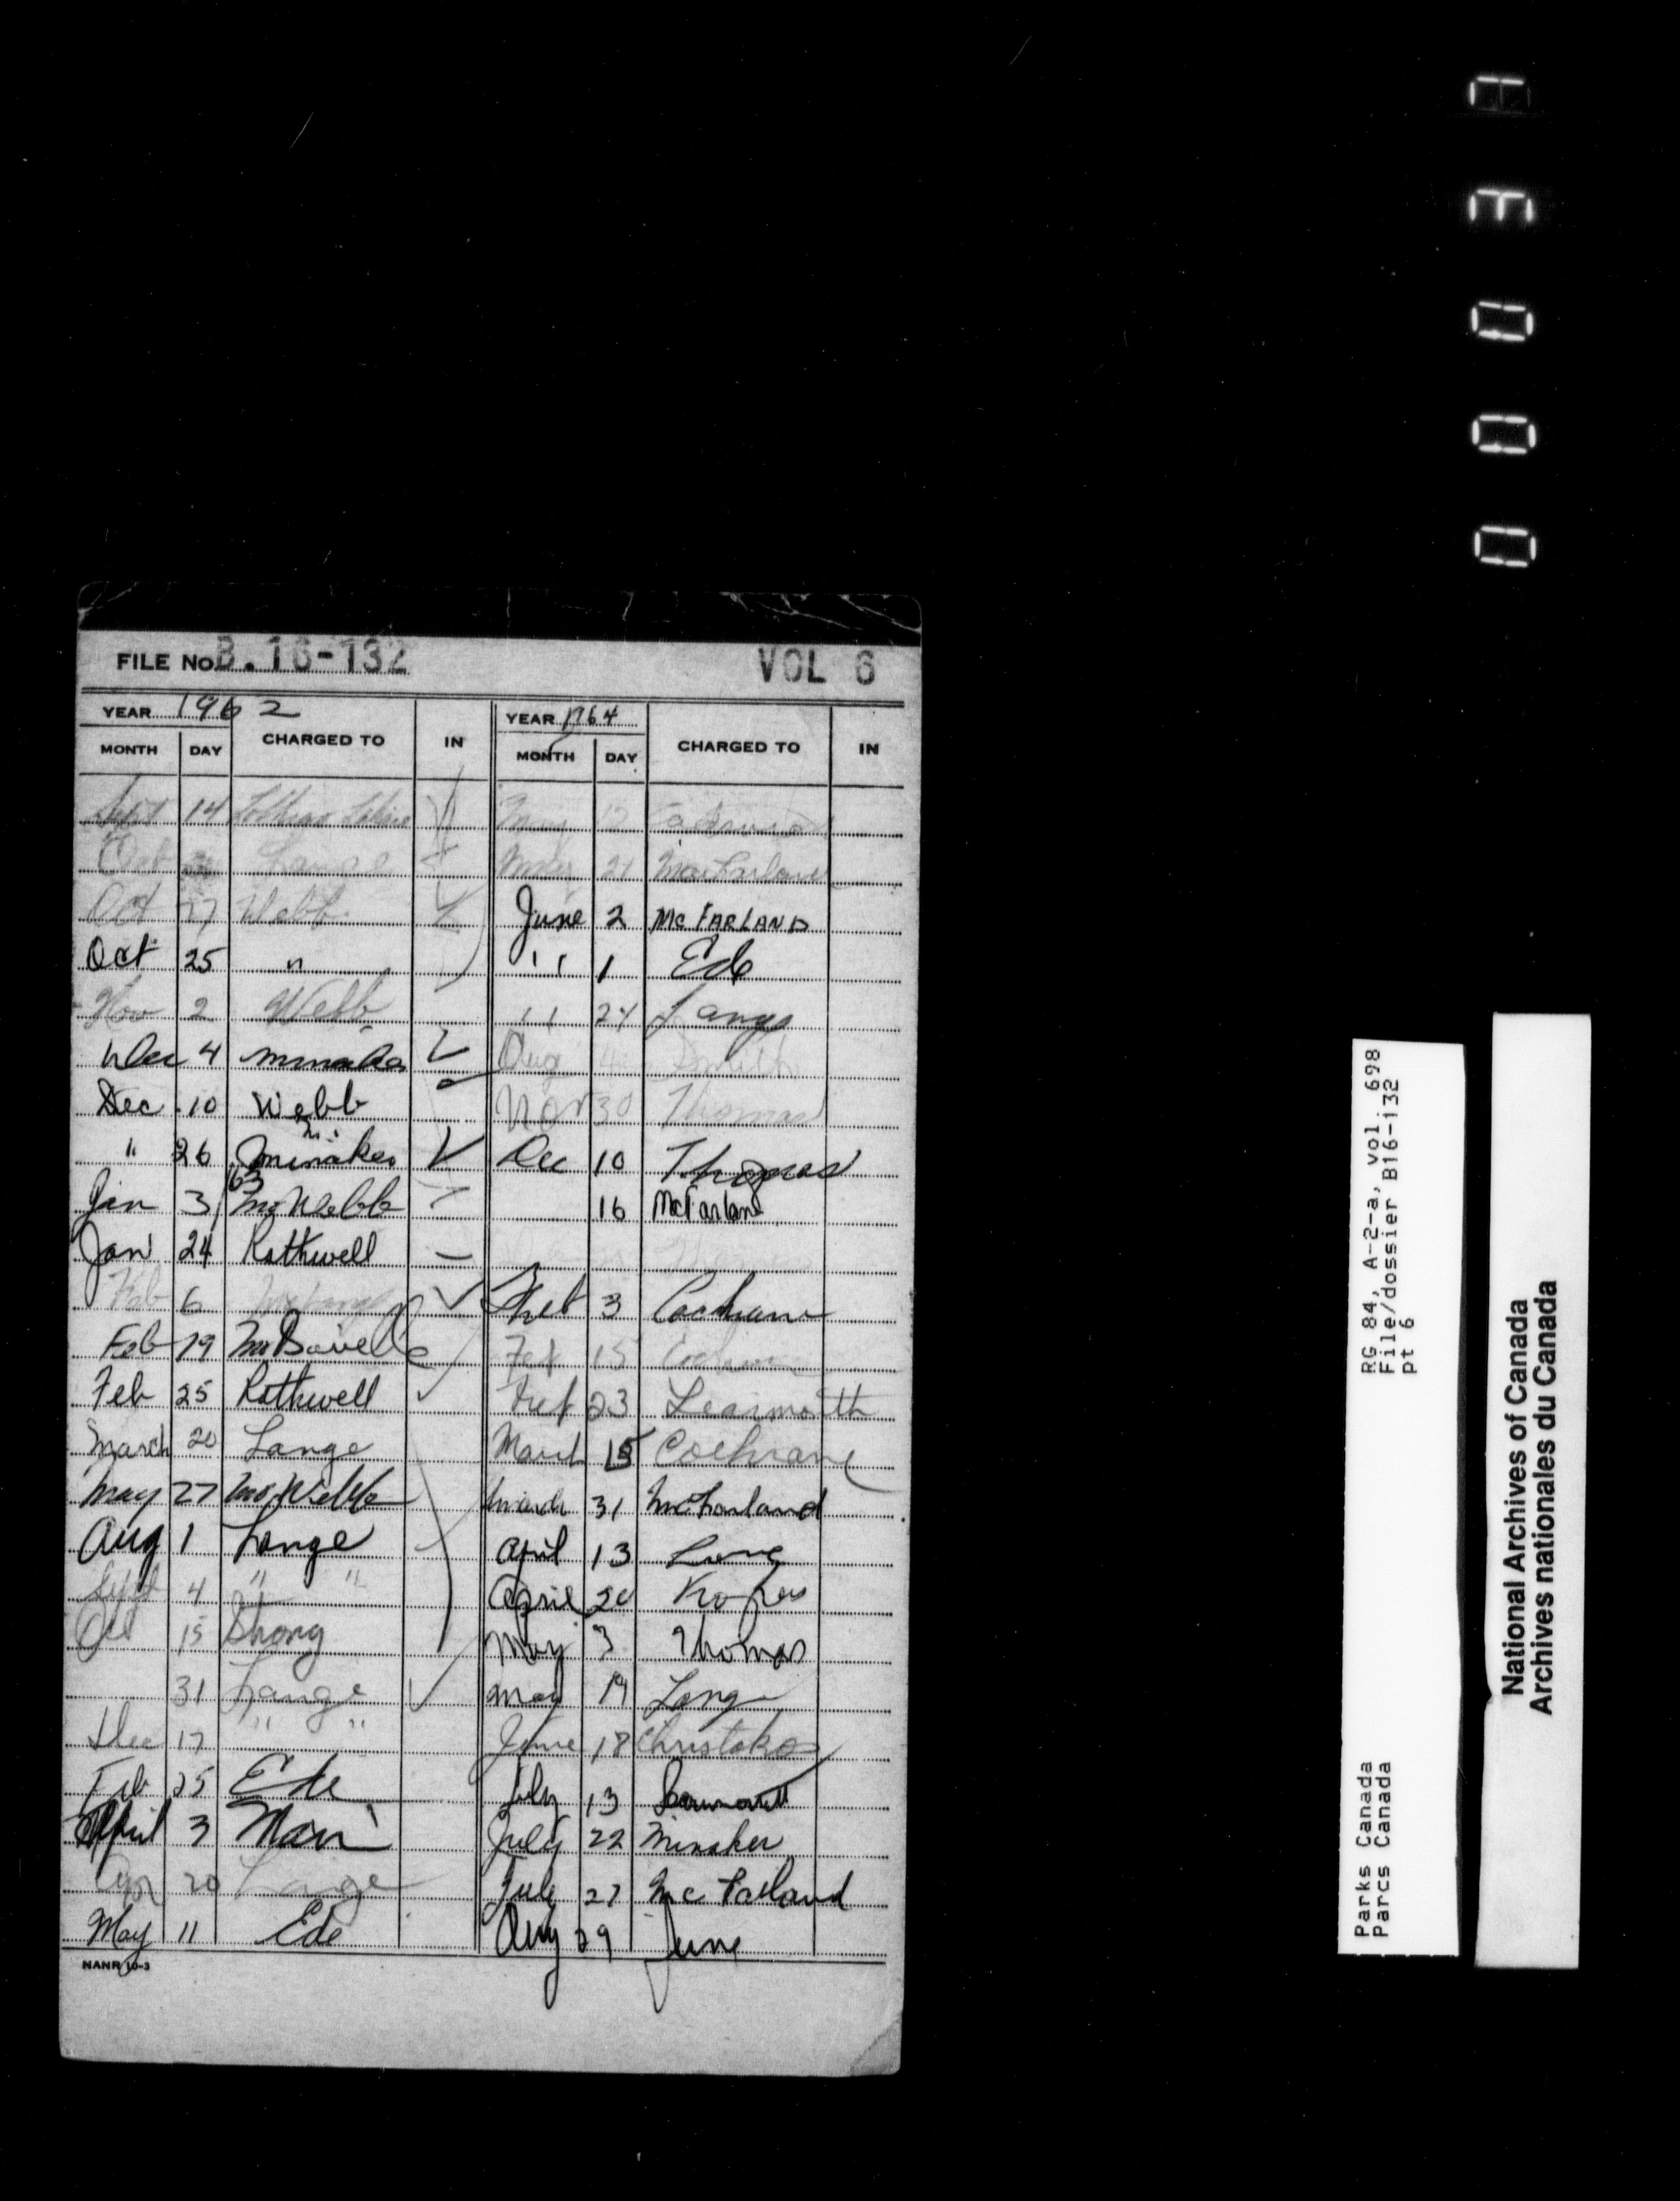 FILE NO. B.16-132 VOL 6
YEAR 1962
MONTH DAY CHARGED TO IN
Sept 14
Oct Lange
Oct 27 Webb
Oct 25 "
Nov 2 Webb
Dec 4 Minaker
Dec 10 Webb
" 26 Minaker
Jan 3/63 Mr Webb
Jan 24 Rothwell
Feb 6
Feb 19 Mr
Feb 25 Rothwell
March 20 Lange
May 27 Mr Webb
Aug 1 Lange
Sept 4 " "
Oct 15 Strong
31 Lange
Dec 17 " "
Feb 25 Ede
April 3
Apr 20 Lange
May 11 Ede
NANR 10-3
YEAR 1964
MONTH DAY CHARGED TO IN
May
May 21 MacFarlane
June 2 McFARLAND
" 1 Ede
" 24 Lange
Aug Smith
Nov 30 Thomas
Dec 10 Thomas
16 McFarlane
Feb 3 Cochrane
Feb 15
Feb 23 Learmonth
March 15 Cochrane
March 31 McFarland
April 13
April 20
May 3 Thomas
May 19 Lange
June 18 Christakos
July 13 Learmonth
July 22 Minaker
July 27 McFarland
Aug 29 June
00037
RG 84, A-2-a, vol. 698
File/dossier B16-132
pt 6
Parks Canada
Parcs Canada
National Archives of Canada
Archives nationales du Canada